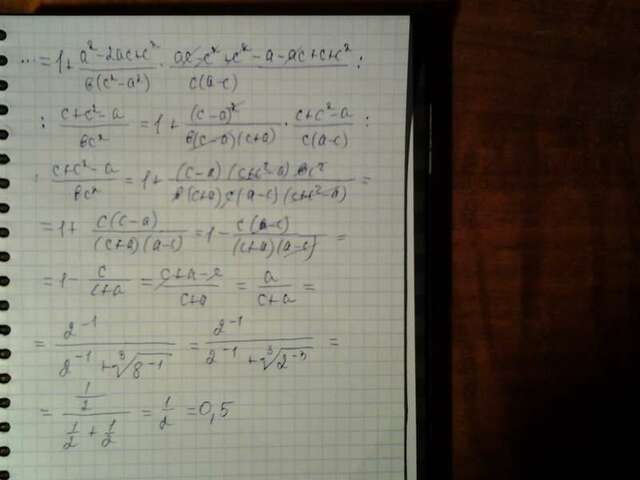 ... = 1 + (a² - 2ac + c²)/(в(c² - a²)) · (ac - c² + c² - a - ac + c + c²)/(c(a-c)) :
: (c + c² - a)/(вc²) = 1 + (c-a)²/(в(c-a)(c+a)) · (c + c² - a)/(c(a-c)) :
: (c + c² - a)/(вc²) = 1 + ((c-a)(c+c²-a)вc²)/(в(c+a)c(a-c)(c+c²-a)) =
= 1 + c(c-a)/((c+a)(a-c)) = 1 - c(a-c)/((c+a)(a-c)) =
= 1 - c/(c+a) = (c+a-c)/(c+a) = a/(c+a) =
= 2⁻¹/(2⁻¹ + ∛8⁻¹) = 2⁻¹/(2⁻¹ + ∛2⁻³) =
= (1/2)/(1/2 + 1/2) = 1/2 = 0,5